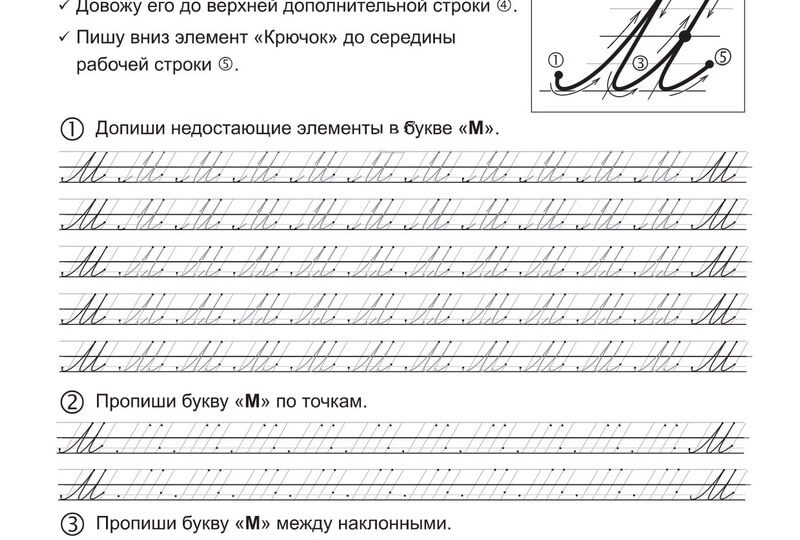 ✓ Довожу его до верхней дополнительной строки ④.
✓ Пишу вниз элемент «Крючок» до середины
рабочей строки ⑤.
① ③ ⑤
① Допиши недостающие элементы в букве «М».
М М
М М
М М
М М
М М
② Пропиши букву «М» по точкам.
М М
М М
③ Пропиши букву «М» между наклонными.